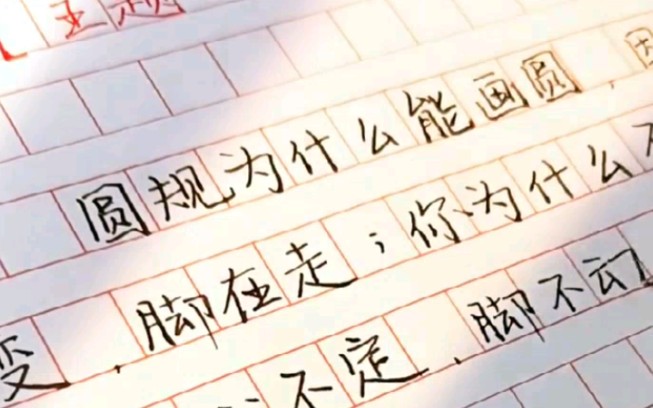 【主题
圆规为什么能画圆,因
变,脚在走;你为什么不
心不定,脚不动